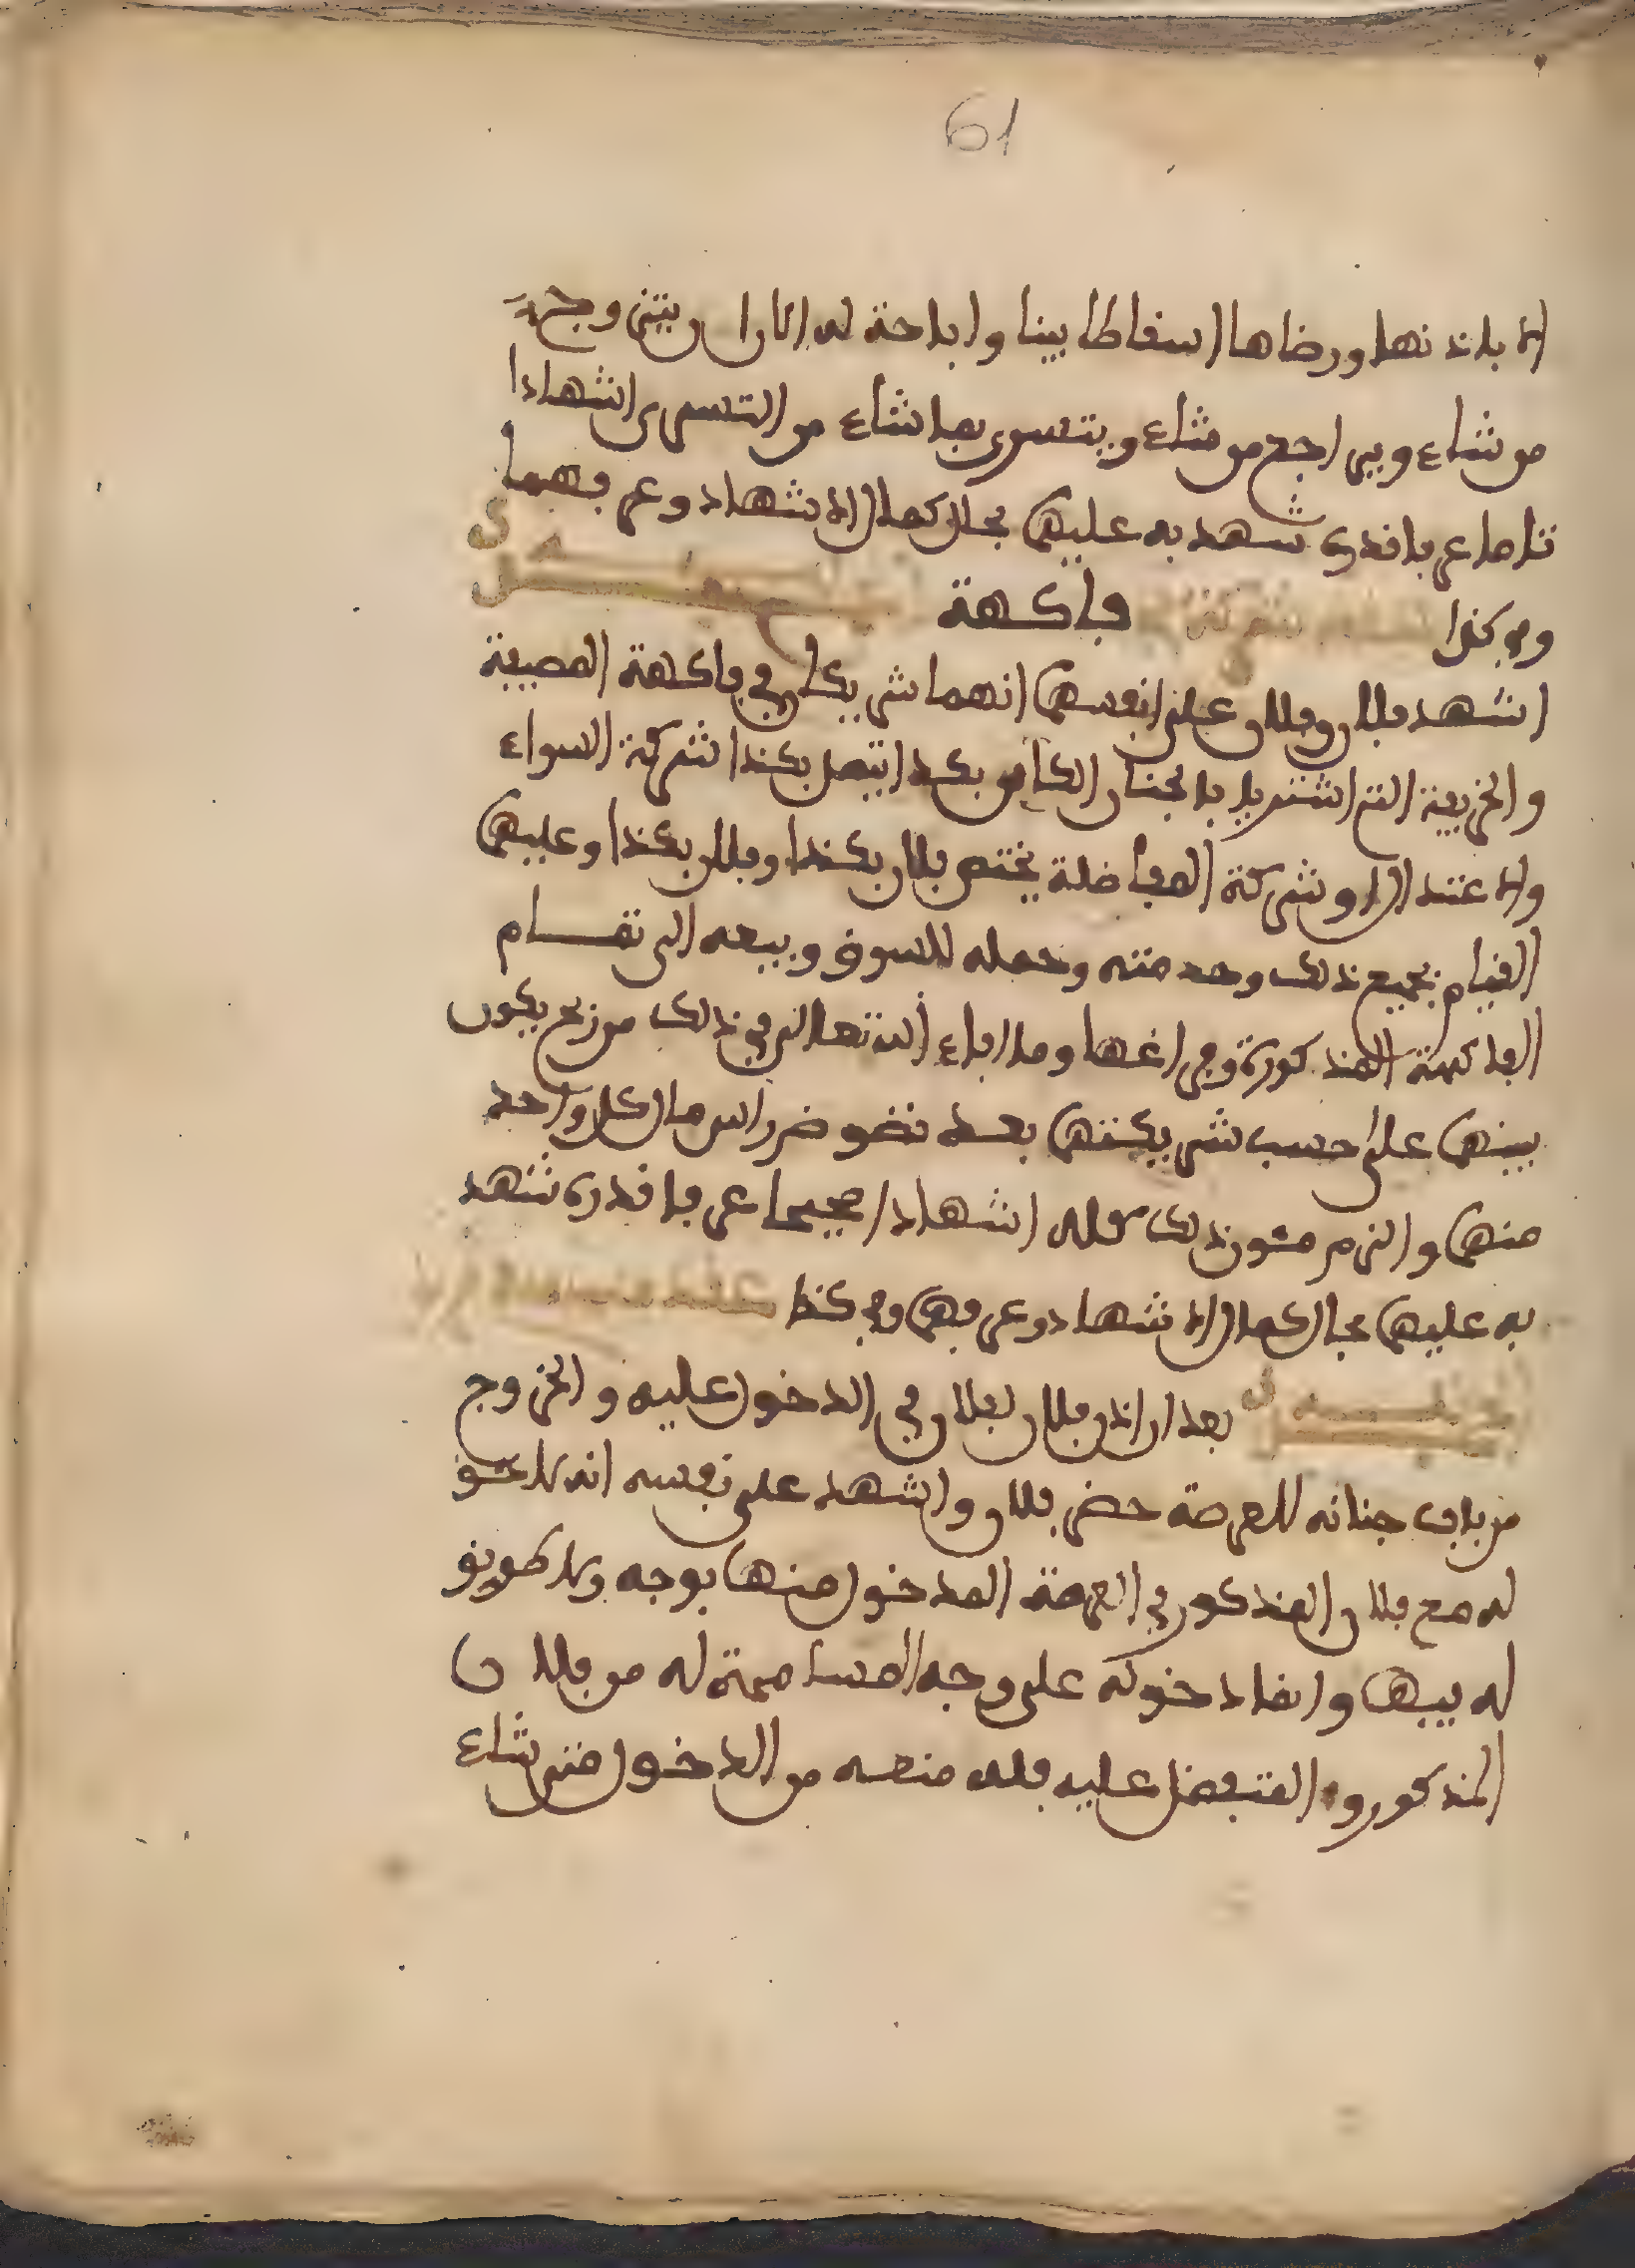 61
الا باذنها ورضاها اسقاطا بينا واباحة له الى ان يتزوج
من شاء ويراجع من شاء ويتسرى بما شاء من التسرى اشهادا
تاما عرفا قدره شهد به عليهما بحال كمال الاشهاد وعرفهما
وفي كذا شركة فاكهة
اشهد فلان وفلان على انفسهما انهما شريكان في فاكهة المصيفة
والخريفة التي اشتريا بالجنان الكائن بكذا ايتصل بكذا شركة السواء
والاعتدال او شركة المفاضلة يختص فلان بكذا وفلان بكذا وعليهما
القيام بجميع ذلك وخدمته وحمله للسوق وبيعه الى تمام
الفاكهة المذكورة وفراغها وما افاء الله تعالى في ذلك من ربح يكون
بينهما على حسب شريكتهما بعد نضوض راس مال كل واحد
منهما والتزم مئون ذلك كله اشهادا صحيحا عرفا قدره شهد
به عليهما بحال كمال الاشهاد وعرفهما وفي كذا عقد
بعد ان اذن فلان لفلان في الدخول عليه والخروج
من باب جنانه للعرصة حضر فلان واشهد على نفسه انه لا حق
له مع فلان المذكور في العرصة المدخول منها بوجه ولا طريق
له فيها وانما دخوله على وجه المسامحة له من فلان
المذكور والتفضل عليه فله منعه من الدخول متى شاء